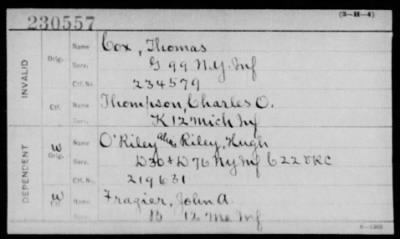 230557
(3-M-4)
INVALID
Orig. Name Cox, Thomas
Serv. G 99 N.Y. Inf
Ctf. No. 234579
Ctf. Name Thompson, Charles O.
K 12 Mich Inf
DEPENDENT
W Orig. Name O'Riley alias Riley, Hugh
Serv. D 30 & D 76 Ny Inf C 22 VRC
Ctf. No. 219631
W Ctf. Name Frazier, John A.
Serv. B 12 Me Inf